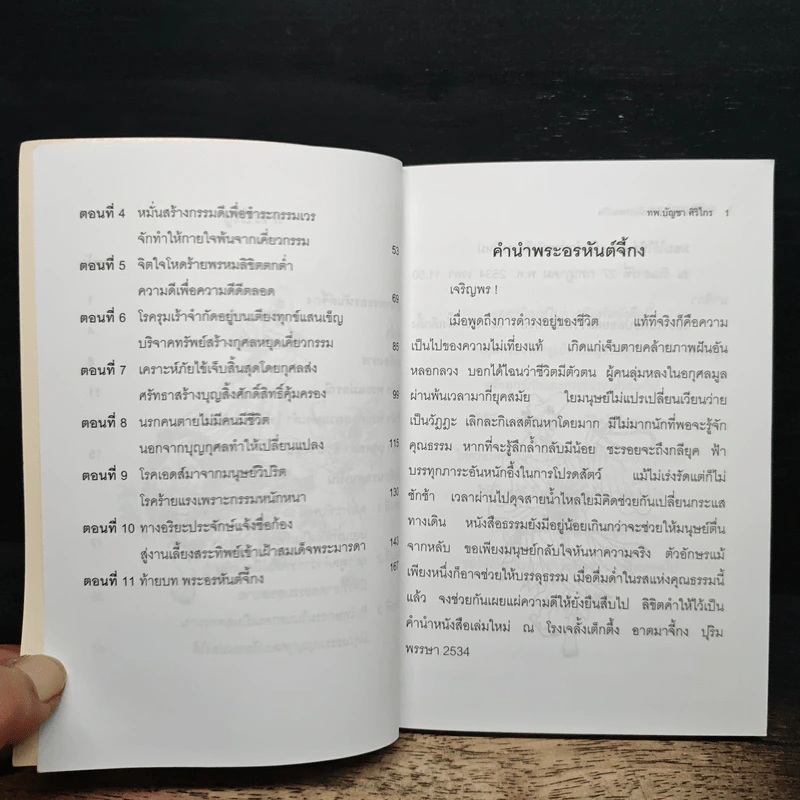 ตอนที่ 4 หมั่นสร้างกรรมดีเพื่อชำระกรรมเวร
จักทำให้กายใจพ้นจากเคี่ยวกรรม 53
ตอนที่ 5 จิตใจโหดร้ายพรหมลิขิตตกต่ำ
ความดีเพื่อความดีดีตลอด 69
ตอนที่ 6 โรครุมเร้าจำกัดอยู่บนเตียงทุกข์แสนเข็ญ
บริจาคทรัพย์สร้างกุศลหยุดเคี่ยวกรรม 85
ตอนที่ 7 เคราะห์ภัยไข้เจ็บสิ้นสุดโดยกุศลส่ง
ศรัทธาสร้างบุญสิ่งศักดิ์สิทธิ์คุ้มครอง 99
ตอนที่ 8 นรกคนตายไม่มีคนมีชีวิต
นอกจากบุญกุศลทำให้เปลี่ยนแปลง 115
ตอนที่ 9 โรคเอดส์มาจากมนุษย์วิปริต
โรคร้ายแรงเพราะกรรมหนักหนา 130
ตอนที่ 10 ทางอริยะประจักษ์แจ้งชื่อก้อง
สู่งานเลี้ยงสระทิพย์เข้าเฝ้าสมเด็จพระมารดา 143
ตอนที่ 11 ท้ายบท พระอรหันต์จี้กง 167
ทพ.บัญชา ศิริไกร 1
คำนำพระอรหันต์จี้กง
เจริญพร !
เมื่อพูดถึงการดำรงอยู่ของชีวิต แท้ที่จริงก็คือความ
เป็นไปของความไม่เที่ยงแท้ เกิดแก่เจ็บตายคล้ายภาพฝันอัน
หลอกลวง บอกได้ไฉนว่าชีวิตมีตัวตน ผู้คนลุ่มหลงในอกุศลมูล
ผ่านพ้นเวลามากี่ยุคสมัย ใยมนุษย์ไม่แปรเปลี่ยนเวียนว่าย
เป็นวัฏฏะ เลิกละกิเลสตัณหาโดยมาก มีไม่มากนักที่พอจะรู้จัก
คุณธรรม หากที่จะรู้ลึกล้ำกลับมีน้อย ชะรอยจะถึงกลียุค ฟ้า
บรรทุกภาระอันหนักอึ้งในการโปรดสัตว์ แม้ไม่เร่งรัดแต่ก็ไม่
ชักช้า เวลาผ่านไปดุจสายน้ำไหลใยมิคิดช่วยกันเปลี่ยนกระแส
ทางเดิน หนังสือธรรมยังมีอยู่น้อยเกินกว่าจะช่วยให้มนุษย์ตื่น
จากหลับ ขอเพียงมนุษย์กลับใจหันหาความจริง ตัวอักษรแม้
เพียงหนึ่งก็อาจช่วยให้บรรลุธรรม เมื่อดื่มด่ำในรสแห่งคุณธรรมนี้
แล้ว จงช่วยกันเผยแผ่ความดีให้ยั่งยืนสืบไป ลิขิตคำให้ไว้เป็น
คำนำหนังสือเล่มใหม่ ณ โรงเจลั้งเต็กตึ้ง อาตมาจี้กง ปุริม
พรรษา 2534